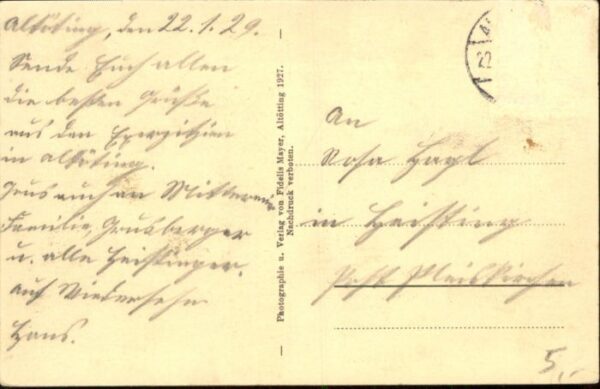 Altötting, den 22.1.29.
Sende Euch allen
die besten Grüße
aus den Exerzitzien
in Altötting.
Grus auch an
Familie, Grusberger
u. alle Heistinger.
auf Wiedersehn
Hans.
Photographie u. Verlag von Fidelis Mayer, Altötting 1927.
Nachdruck verboten.
An
Rosa Hagl
in Heisting
Post Pleiskirchen
5,-